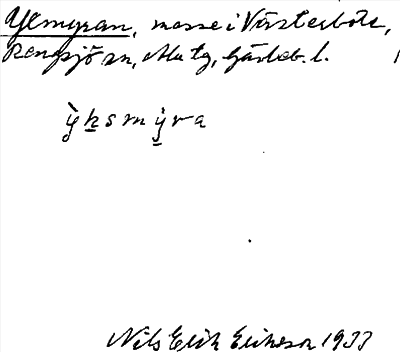 Yxmyran, mosse i Västerböle,
Rengsjö sn, Ala tg, Gävleb. l.
ỳksmỳra
Nils Erik Eriksson 1933